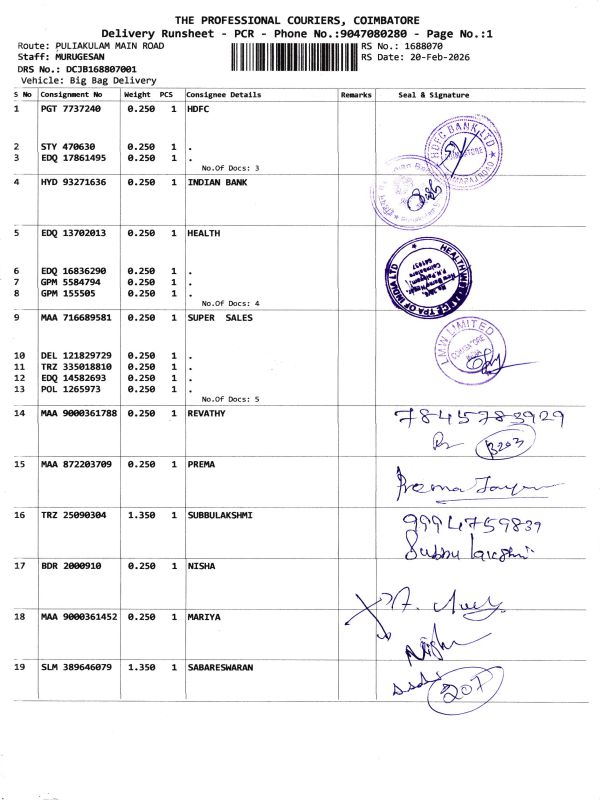 THE PROFESSIONAL COURIERS, COIMBATORE
Delivery Runsheet - PCR - Phone No.:9047080280 - Page No.:1
Route: PULIAKULAM MAIN ROAD RS No.: 1688070
Staff: MURUGESAN RS Date: 20-Feb-2026
DRS No.: DCJB168807001
Vehicle: Big Bag Delivery
S No Consignment No Weight PCS Consignee Details Remarks Seal & Signature
1 PGT 7737240 0.250 1 HDFC
2 STY 470630 0.250 1 .
3 EDQ 17861495 0.250 1 .
No.Of Docs: 3
HDFC BANK LTD
4 HYD 93271636 0.250 1 INDIAN BANK
5 EDQ 13702013 0.250 1 HEALTH
6 EDQ 16836290 0.250 1 .
7 GPM 5584794 0.250 1 .
8 GPM 155505 0.250 1 .
No.Of Docs: 4
TPA OF INDIA LTD
9 MAA 716689581 0.250 1 SUPER SALES
10 DEL 121829729 0.250 1 .
11 TRZ 335018810 0.250 1 .
12 EDQ 14582693 0.250 1 .
13 POL 1265973 0.250 1 .
No.Of Docs: 5
LMW LIMITED
COIMBATORE
14 MAA 9000361788 0.250 1 REVATHY 7845783929
B203
15 MAA 872203709 0.250 1 PREMA Prema
16 TRZ 25090304 1.350 1 SUBBULAKSHMI 9994759839
Subbu lakshmi
17 BDR 2000910 0.250 1 NISHA
18 MAA 9000361452 0.250 1 MARIYA
19 SLM 389646079 1.350 1 SABARESWARAN
207